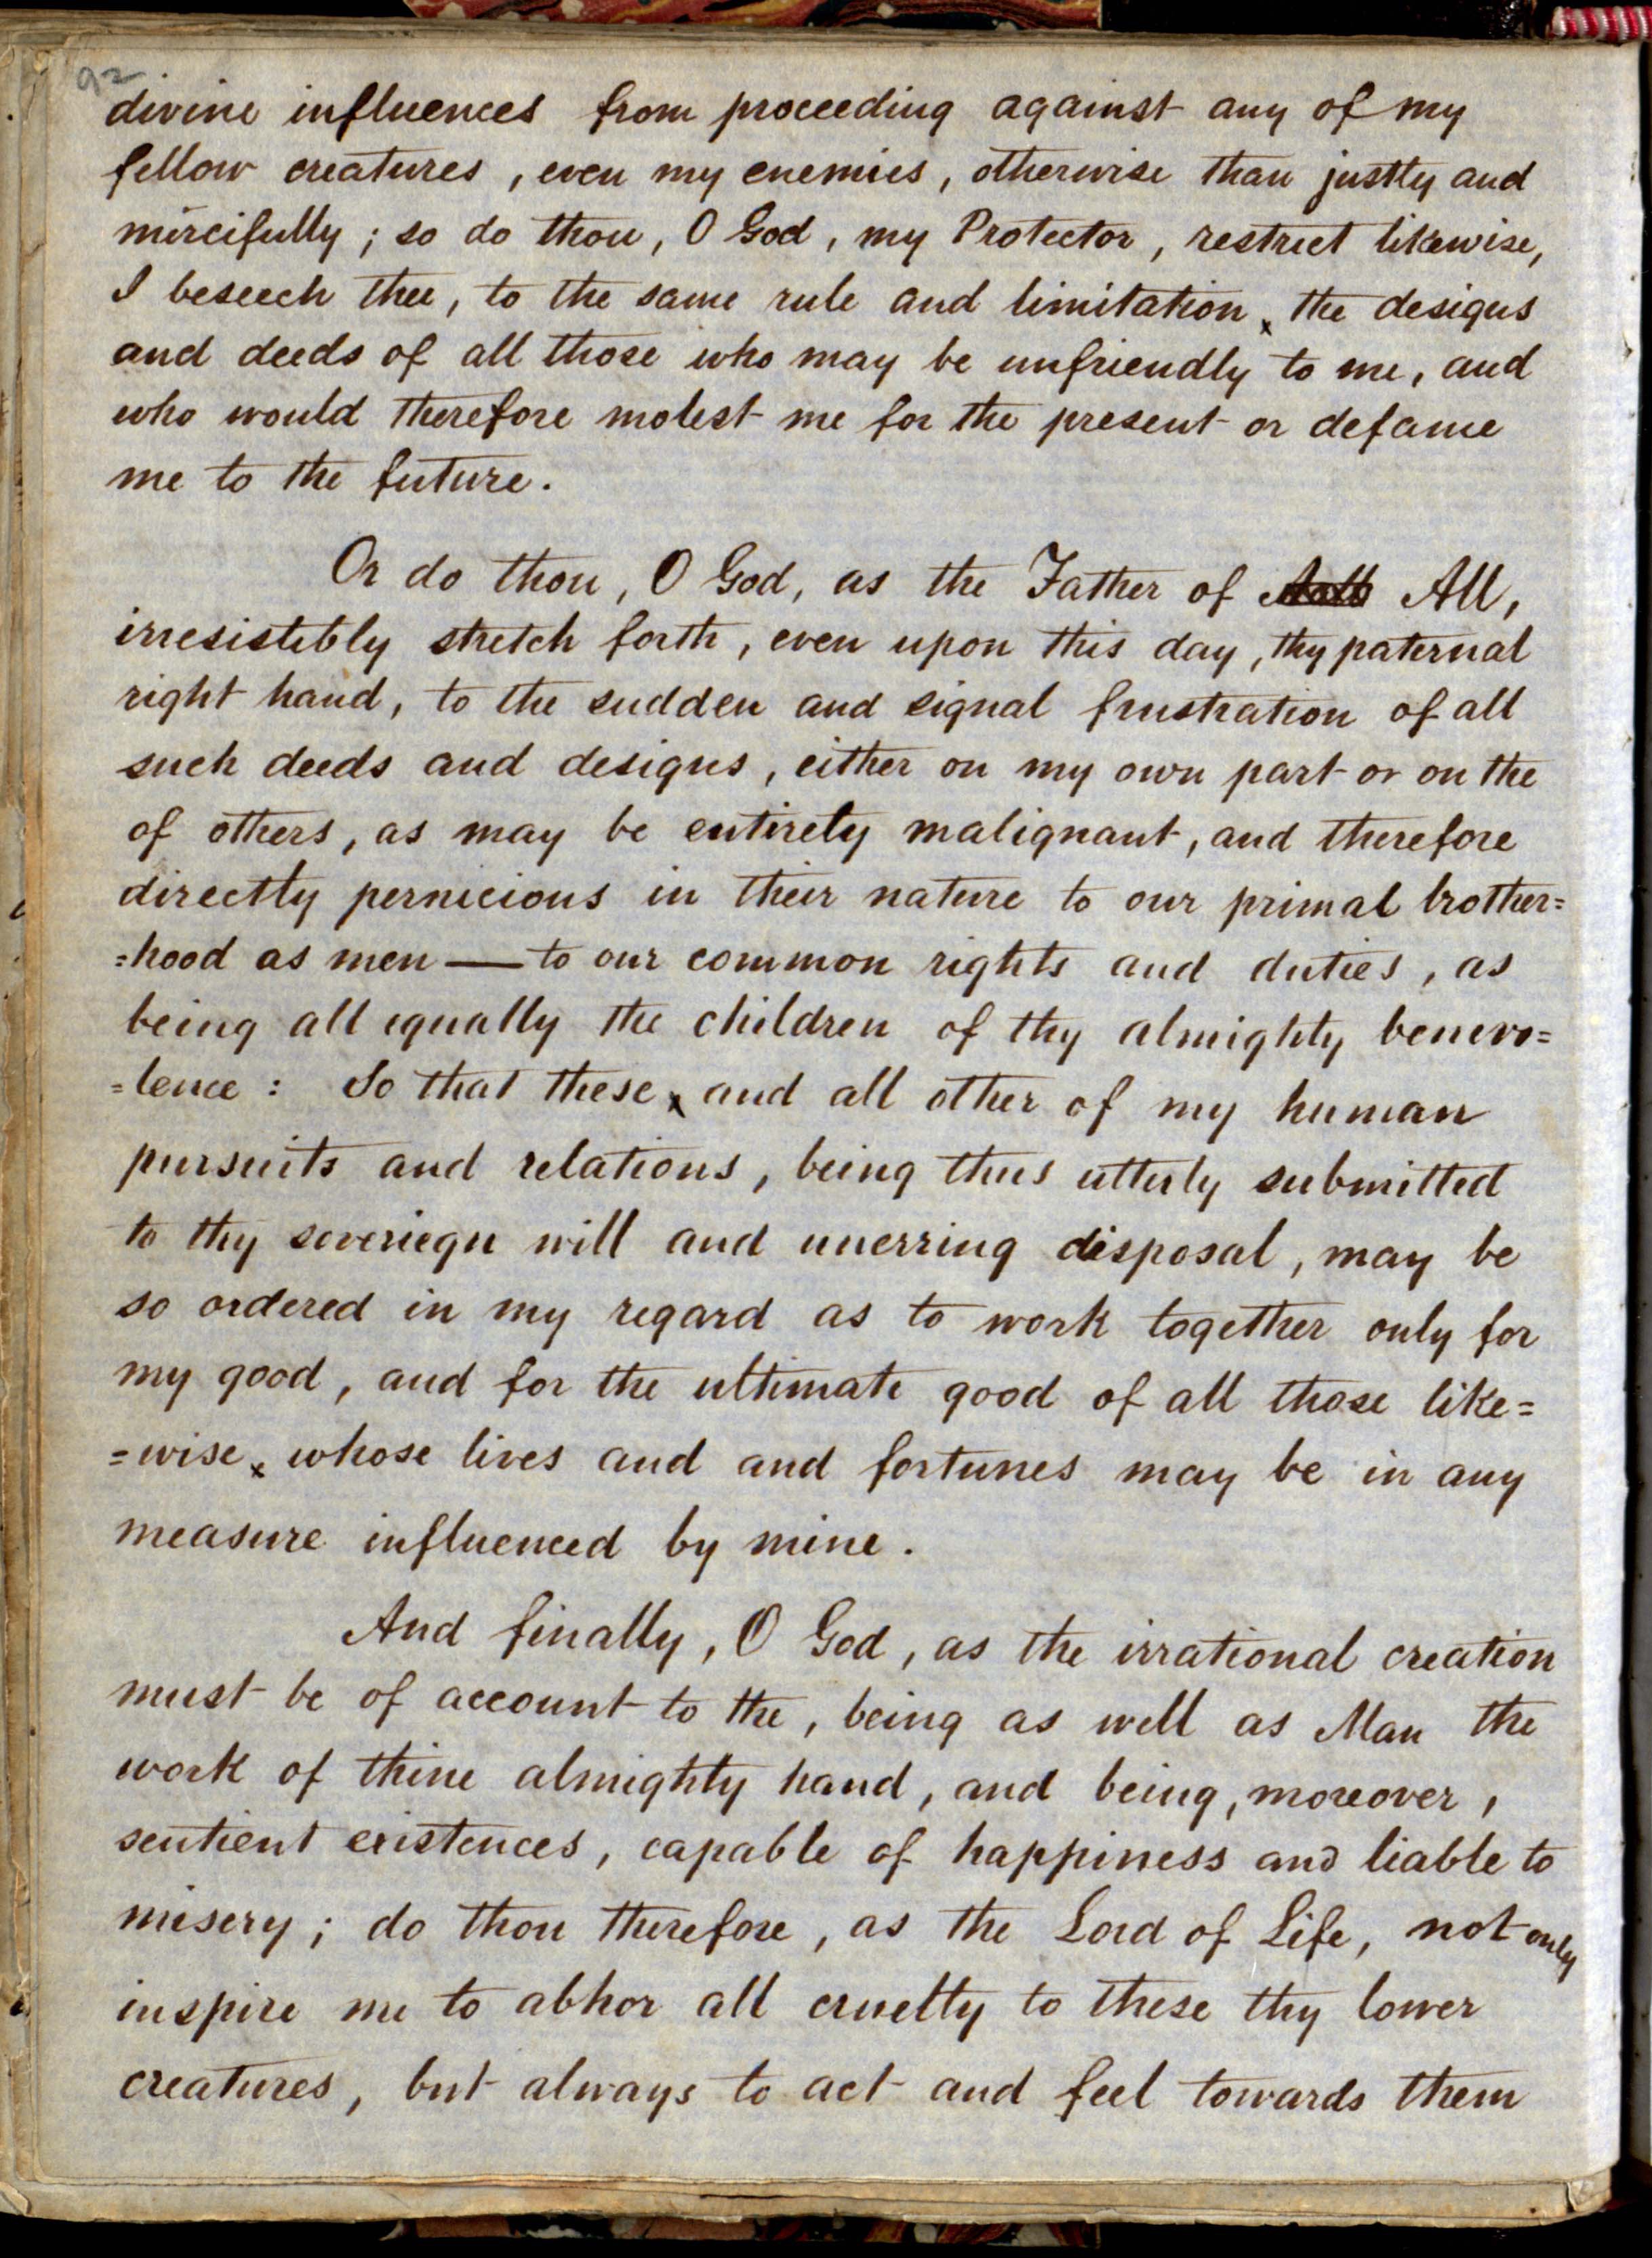 92
divine influences from proceeding against any of my
fellow creatures, even my enemies, otherwise than justly and
mircifully; so do thou, O God, my Protector, restrict likewise,
I beseech thee, to the same rule and limitation, the designs
and deeds of all those who may be unfriendly to me, and
who would therefore molest me for the present or defame
me to the future.
Or do thou, O God, as the Father of All,
irresistibly stretch forth, even upon this day, thy paternal
right hand, to the sudden and signal frustration of all
such deeds and designs, either on my own part or on the
of others, as may be entirely malignant, and therefore
directly pernicious in their nature to our primal brother=
=hood as men — to our common rights and duties, as
being all equally the children of thy almighty benevo=
=lence: So that these, and all other of my human
pursuits and relations, being thus utterly submitted
to thy soveriegn will and unerring disposal, may be
so ordered in my regard as to work together only for
my good, and for the ultimate good of all those like=
=wise, whose lives and and fortunes may be in any
measure influenced by mine.
And finally, O God, as the irrational creation
must be of account to the, being as well as Man the
work of thine almighty hand, and being, moreover,
sentient existences, capable of happiness and liable to
misery; do thou therefore, as the Lord of Life, not only
inspire me to abhor all cruelty to these thy lower
creatures, but always to act and feel towards them